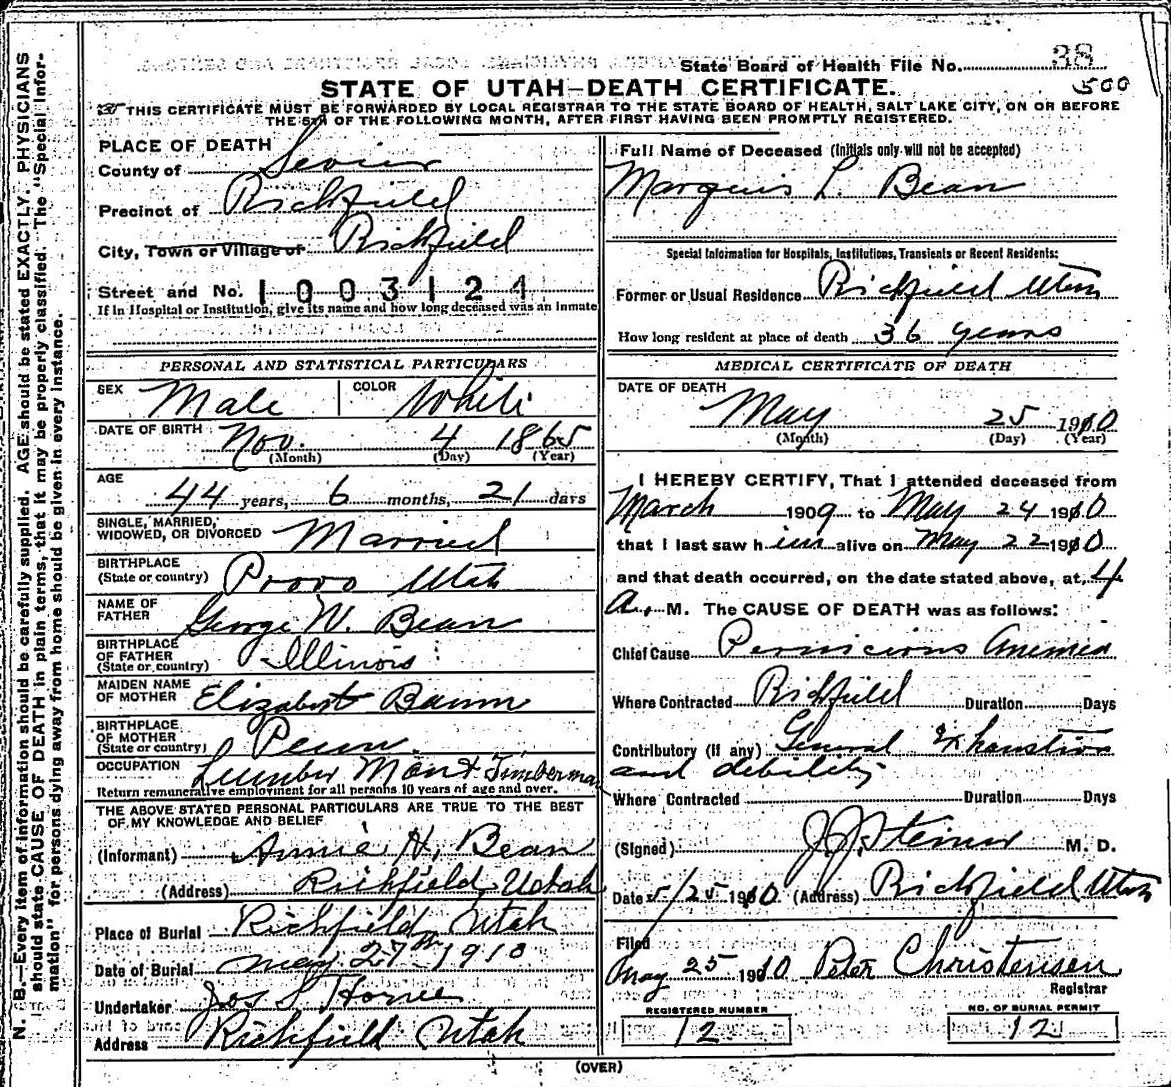 State Board of Health File No. 38
500
STATE OF UTAH—DEATH CERTIFICATE.
THIS CERTIFICATE MUST BE FORWARDED BY LOCAL REGISTRAR TO THE STATE BOARD OF HEALTH, SALT LAKE CITY, ON OR BEFORE
THE 5TH OF THE FOLLOWING MONTH, AFTER FIRST HAVING BEEN PROMPTLY REGISTERED.
PLACE OF DEATH
County of Sevier
Precinct of Richfield
City, Town or Village of Richfield
Street and No. 1003124
If in Hospital or Institution, give its name and how long deceased was an inmate
PERSONAL AND STATISTICAL PARTICULARS
SEX Male COLOR White
DATE OF BIRTH Nov. 4 1865
(Month) (Day) (Year)
AGE
44 years, 6 months, 21 days
SINGLE, MARRIED,
WIDOWED, OR DIVORCED Married
BIRTHPLACE
(State or country) Provo Utah
NAME OF
FATHER George W. Bean
BIRTHPLACE
OF FATHER
(State or country) Illinois
MAIDEN NAME
OF MOTHER Elizabeth Baum
BIRTHPLACE
OF MOTHER
(State or country) Penn.
OCCUPATION Lumber Man & Timberman
Return remunerative employment for all persons 10 years of age and over.
THE ABOVE STATED PERSONAL PARTICULARS ARE TRUE TO THE BEST
OF MY KNOWLEDGE AND BELIEF
(Informant) Annie H. Bean
(Address) Richfield, Utah
Place of Burial Richfield Utah
Date of Burial May 27th 1910
Undertaker Jos S Horne
Address Richfield Utah
Full Name of Deceased (Initials only will not be accepted)
Marquis L. Bean
Special Information for Hospitals, Institutions, Transients or Recent Residents:
Former or Usual Residence Richfield Utah
How long resident at place of death 36 years
MEDICAL CERTIFICATE OF DEATH
DATE OF DEATH
May 25 1910
(Month) (Day) (Year)
I HEREBY CERTIFY, That I attended deceased from
March 1909 to May 24 1910
that I last saw him alive on May 22 1910
and that death occurred, on the date stated above, at 4
A. M. The CAUSE OF DEATH was as follows:
Chief Cause Pernicious Anemea
Where Contracted Richfield Duration Days
Contributory (if any) General Exhaustion
and debility
Where Contracted Duration Days
(Signed) J. J. Steiner M. D.
Date 5/25 1910 (Address) Richfield Utah
Filed
May 25 1910 Peter Christensen
Registrar
REGISTERED NUMBER
12
NO. OF BURIAL PERMIT
12
(OVER)
N. B.—Every item of information should be carefully supplied. AGE should be stated EXACTLY. PHYSICIANS
should state CAUSE OF DEATH in plain terms, that it may be properly classified. The "Special Infor-
mation" for persons dying away from home should be given in every instance.